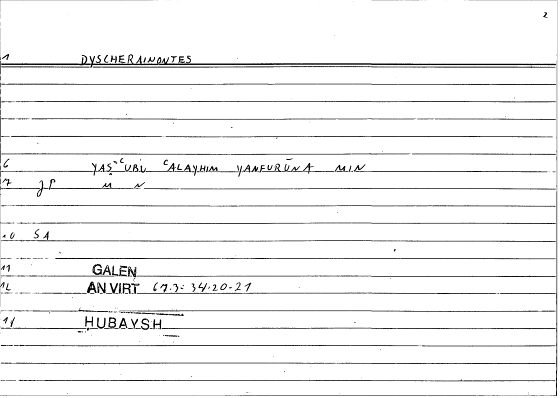 2
1 DYSCHERAINONTES
6 YAṢʿUBU ʿALAYHIM YANFURŪNA MIN
7 JP M N
10 SA
11 GALEN
12 AN VIRT 67.3: 34.20-21
HUBAYSH